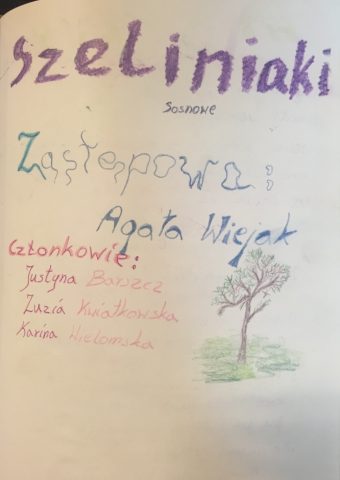 Szeliniaki
Sosnowe
Zastępowa:
Agata Wiejak
Członkowie:
Justyna Barszcz
Zuzia Kwiatkowska
Karina Wielomska